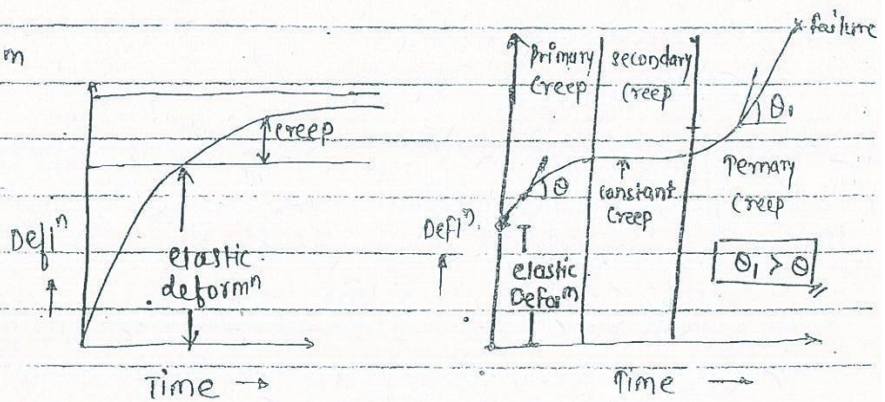 m
creep
Deflⁿ
elastic
deformⁿ
Time →
Primary
Creep
secondary
Creep
failure
θ₁
θ
constant
Creep
Ternary
Creep
Deflⁿ.
elastic
Deforⁿ
θ₁ > θ
Time →